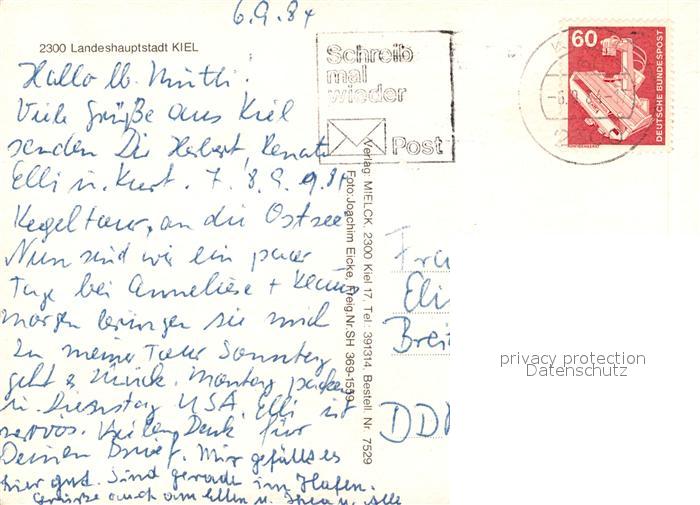 6.9.84
2300 Landeshauptstadt KIEL
Hallo lb. Mutti.
Viele Grüße aus Kiel
senden Dir Herbert, Renate
Elli u. Kurt. 7. 8. 9. 9. 84
Kegeltour, an die Ostsee
Nun sind wir ein paar
Tage bei Anneliese + Klaus
morgen bringen sie mich
zu meiner Tour Sonntag
geht es zurück. Montag packen
u. Dienstag USA. Elli ist
nervös. Vielen Dank für
Deinen Brief. Mir gefällt es
hier gut. Sind gerade im Hafen.
Grüße auch an Ellen u. alle
Schreib
mal
wieder
Post
60
DEUTSCHE BUNDESPOST
Verlag: MIELCK, 2300 Kiel 17, Tel.: 391314, Bestell. Nr. 7529
Foto: Joachim Eicke, Freig.Nr.SH 369-1539
Fra
Eli
Brei
DDR
privacy protection
Datenschutz